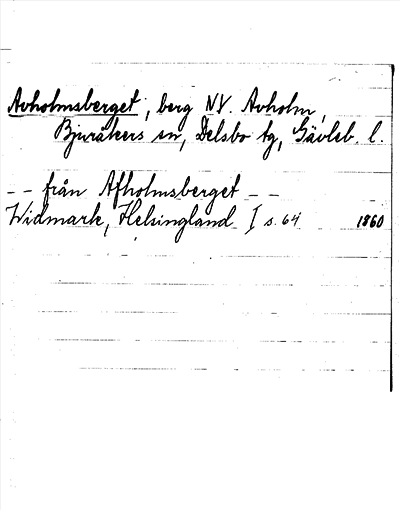 Avholmsberget, berg NV. Avholm,
Bjuråkers sn, Delsbo tg, Gävleb. l.
-- från Afholmsberget --
Widmark, Helsingland I s. 64 1860